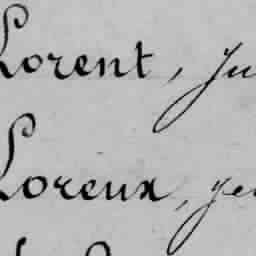 Lorent, Ju
Loreux, ye